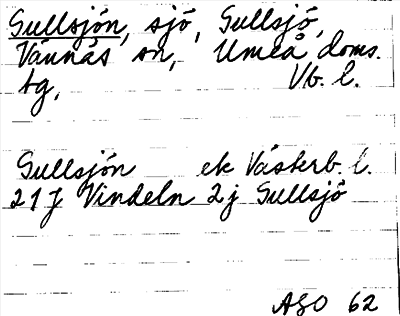 Gullsjön, sjö, Gullsjö,
Vännäs sn, Umeå doms.
tg, Vb. l.
Gullsjön ek Västerb. l.
21 J Vindeln 2j Gullsjö
ASO 62